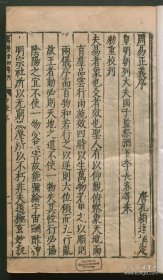 周易正義序
唐孔穎達
皇明朝列大夫國子監祭酒臣李長春等奉
勅重校刊
夫易者象也爻者效也聖人有以仰觀俯察象天地而
育羣品雲行雨施效四時以生萬物若用之以順則
兩儀序而百物和若行之以逆則六位傾而五行亂
故王者動必則天地之道不使一物失其性行必協
陰陽之宜不使一物受其害故能彌綸宇宙酬酢神
明宗社所以無窮風聲所以不朽非夫道極玄妙孰